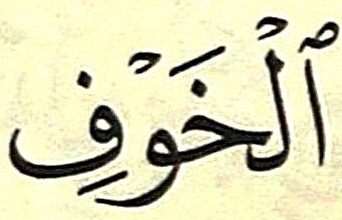 ٱلْخَوْفِ